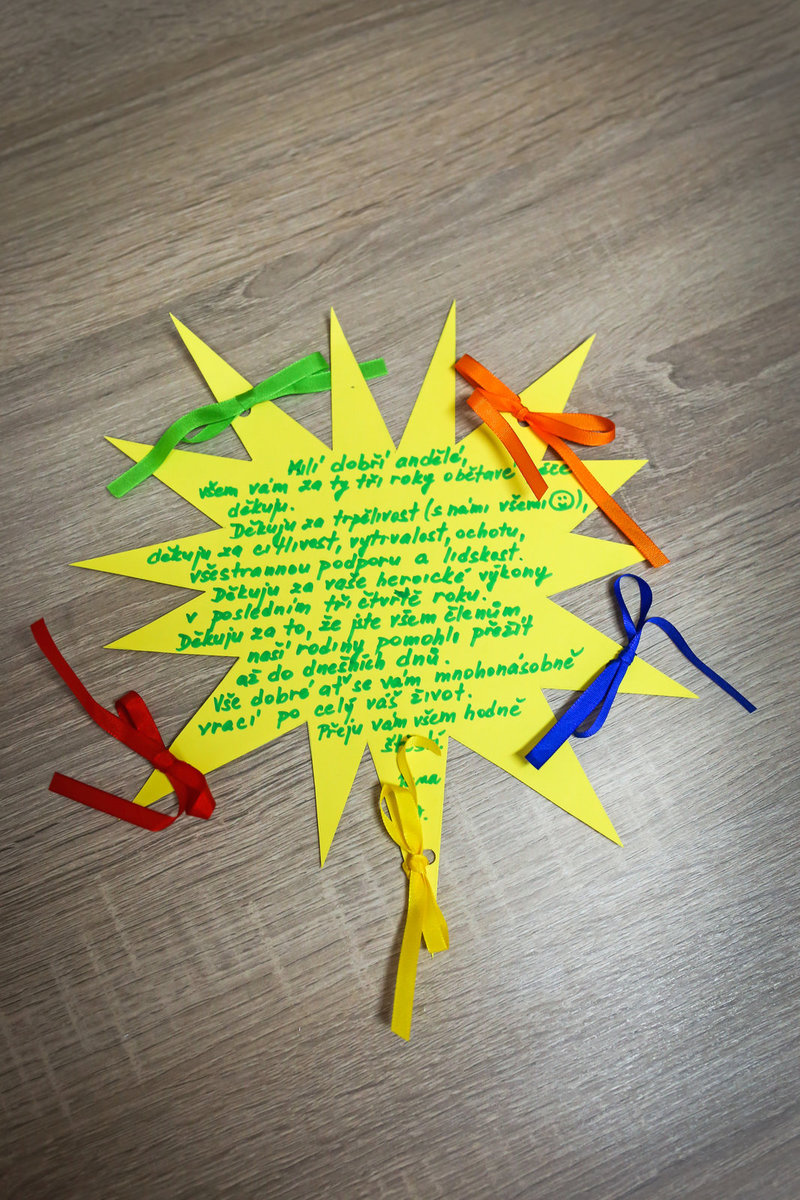 Milí dobří andělé,
všem vám za ty tři roky obětavé
děkuju.
Děkuju za trpělivost (s námi všemi☺),
děkuju za citlivost, vytrvalost, ochotu,
všestrannou podporu a lidskost.
Děkuju za vaše heroické výkony
v posledním tři čtvrtě roku.
Děkuju za to, že jste všem členům
naší rodiny pomohli přežít
až do dnešních dnů.
Vše dobré ať se vám mnohonásobně
vrací po celý váš život.
Přeju vám všem hodně